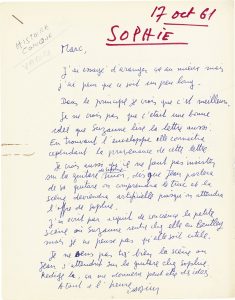 17 oct 61
SOPHIE
HISTOIRE
COMIQUE
Marc,
J'ai essayé d'arranger au mieux mais
j'ai peur que ce soit un peu long.
Dans le principe je crois que c'est meilleur.
Je ne crois pas que c'était une bonne
idée que Suzanne lise la lettre aussi.
En trouvant l'enveloppe elle connaitra
cependant la provenance de cette lettre
Je crois aussi qu'il ne faut pas insister
sur la guitare sinon, dès que Jean parlera
de sa guitare on comprendra le truc et la
scène deviendra artificielle puisqu'on attendra
l'effet Sophie.
J'ai écrit par de conscience la petite
scène où Suzanne rentre chez elle en
mais je ne pense pas qu'elle soit utile.
Je ne pas très bien la scène où
Jean s'attendrit sur la guitare chez Sophie.
Rédige la, ça me donnera peut être des idées
A tout à l'heure